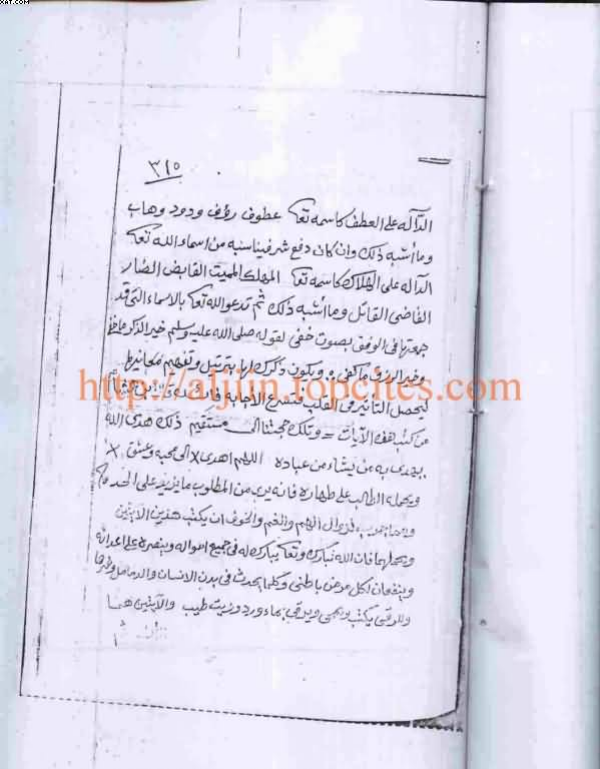 XAT.COM
٣١٥
الدآله على العطف كاسمه تعا عطوف رؤف ودود وهاب
وما أشبه ذلك وان كان دفع شر فيناسبه من اسماء الله تعا
الدآله على الهلاك كاسمه تعا المهلك المميت القابض الضار
القاضى القاتل وما أشبه ذلك ثم تدعو الله تعا بالاسماء التى قد
جمعتها فى الوفق بصوت خفى لقوله صلى الله عليه وسلم خير الذكر ما خفى
وخير الرزق ما كفى ويكون ذكرك لها بترتيل وتفهيم معانيها
ليحصل التأثير فى القلب الاجابه
http://aljiin.topcites.com
من كتب هذه الآيات = وتلك حجتنا الى مستقيم ذلك هدى الله
يهدى به من يشاء من عباده اللهم اهدى × الى محبه وعشق ×
ويحمله الطالب على طهاره فانه يرى من المطلوب ما يزيد على الحد
لزوال الهم والغم والخوف ان يكتب هذين الايتين
ويحملهما فان الله تبارك وتعا يبارك له فى جميع امواله وينصره على اعدائه
وينفعان لكل مرض باطنى وكلما يحدث فى بدن الانسان والدمامل
وللرقى يكتب ويمحى ويرقى بماء ورد وزيت طيب والآيتين هما